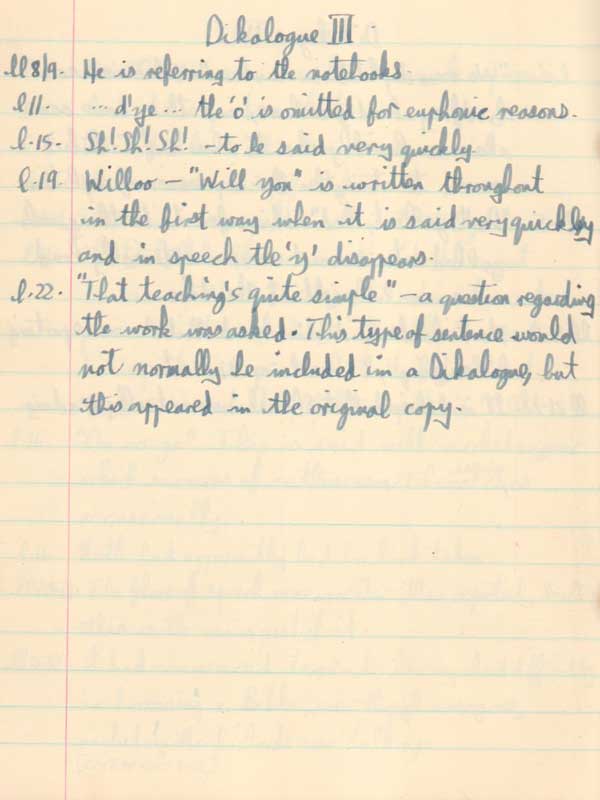 Dikalogue III
ll 8/9. He is referring to the notebooks.
l.11. ... d'ye ... the 'o' is omitted for euphonic reasons.
l.15. Sh! Sh! Sh! - to be said very quickly.
l.19. Willoo - "Will you" is written throughout
in the first way when it is said very quickly
and in speech the 'y' disappears.
l.22. "That teaching's quite simple" - a question regarding
the work was asked. This type of sentence would
not normally be included in a Dikalogue, but
this appeared in the original copy.